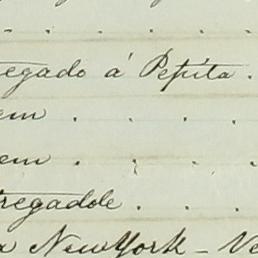 . . . . . .
egado á Pepita .
em . . . .
em . . . .
regadole . . .
a New York - Ve